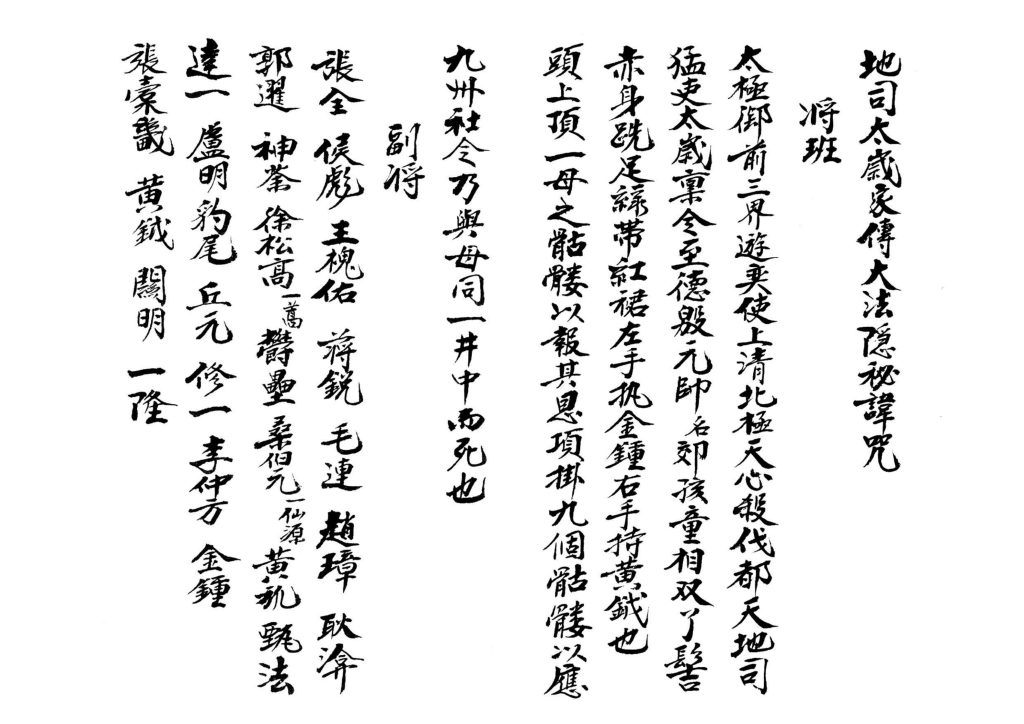 地司太歲家傳大法隱秘諱咒
將班
太極御前三界遊奕使上清北極天心殺伐都天地司
猛吏太歲稟令至德殷元帥名郊孩童相双丫髻
赤身跣足綵帶紅裙左手执金鍾右手持黃鉞也
頭上頂一母之骷髏以報其恩項掛九個骷髏以應
九州社令乃與母同一井中而死也
副將
張全 侯彪 王槐佑 蔣銳 毛連 趙璋 耿渰
郭選 神荼 徐松高一萬 欝壘 桑伯元一仙源 黃執 甄法
達一 盧明 豹尾 丘元 修一 李仲方 金鍾
張彙 黃鉞 闢明 一隆